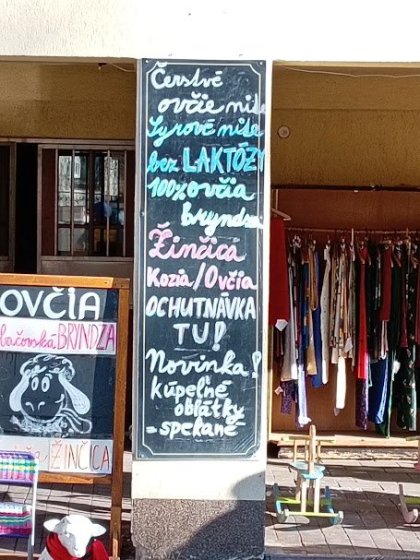 Čerstvé
ovčie nite
Syrové nite
bez LAKTÓZY
100% ovčia
Bryndza
Žinčica
Kozia/Ovčia
OCHUTNÁVKA
TU!
Novinka!
kúpeľné
oblátky
- spekané
OVČIA
BRYNDZA
ŽINČICA